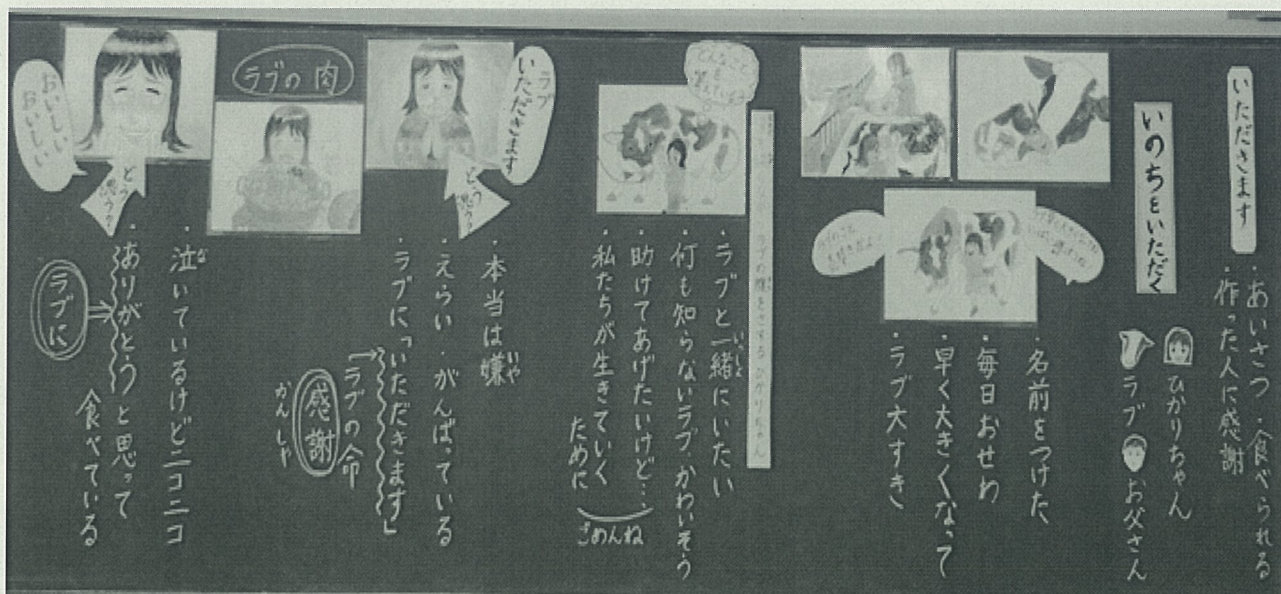 いただきます
・あいさつ・食べられる
作った人に感謝
いのちをいただく
ひかりちゃん
ラブ お父さん
・名前をつけた
・毎日おせわ
・早く大きくなって
・ラブ大すき
ラブの腹をさするひかりちゃん
・ラブと一緒にいたい
いっしょ
・何も知らないラブ、かわいそう
・助けてあげたいけど…
・私たちが生きていく
ために
ごめんね
ラブ
いただきます
どう思う?
・本当は嫌
いや
・えらい・がんばっている
・ラブに「いただきます」
ラブの命
感謝
かんしゃ
ラブの肉
おいしい
おいしい
どう思う?
・泣いているけどニコニコ
な
・ありがとうと思って
食べている
ラブに